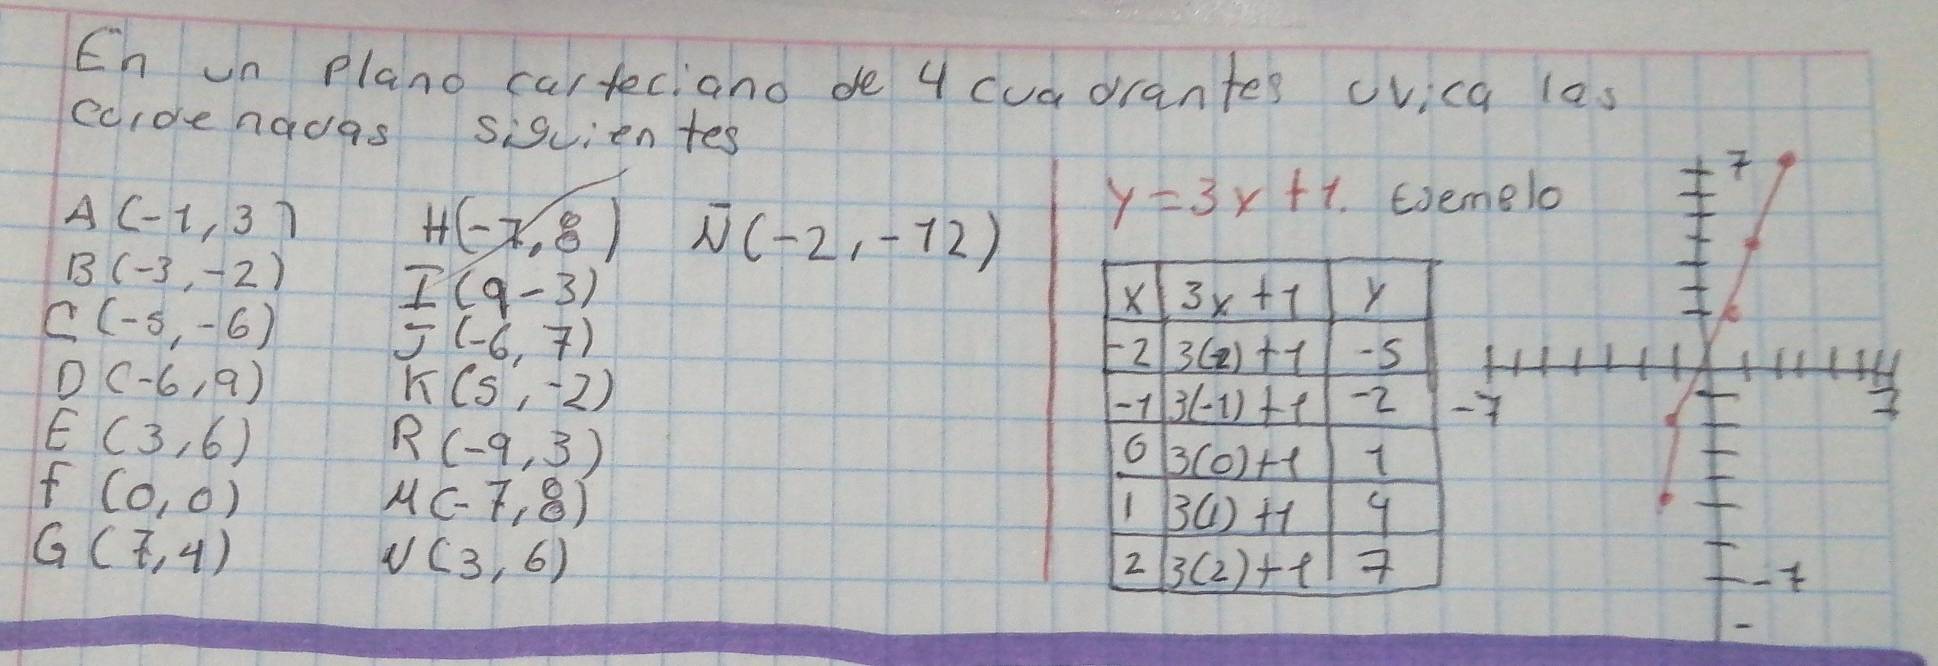 En un plano carteciano de 4 cuadrantes uvica las
cordenadas siguientes
A (-1, 3)
B (-3, -2)
C (-5, -6)
D (-6, 9)
E (3, 6)
F (0, 0)
G (7, 4)
H (-7, 8)
I (9 - 3)
J (-6, 7)
K (5, -2)
R (-9, 3)
M (-7, 8)
N (3, 6)
Ñ (-2, -12)
y = 3x + 1. Ejemplo
x 3x + 1 y
-2 3(-2) + 1 -5
-1 3(-1) + 1 -2
0 3(0) + 1 1
1 3(1) + 1 4
2 3(2) + 1 7
7
-7 7
-7